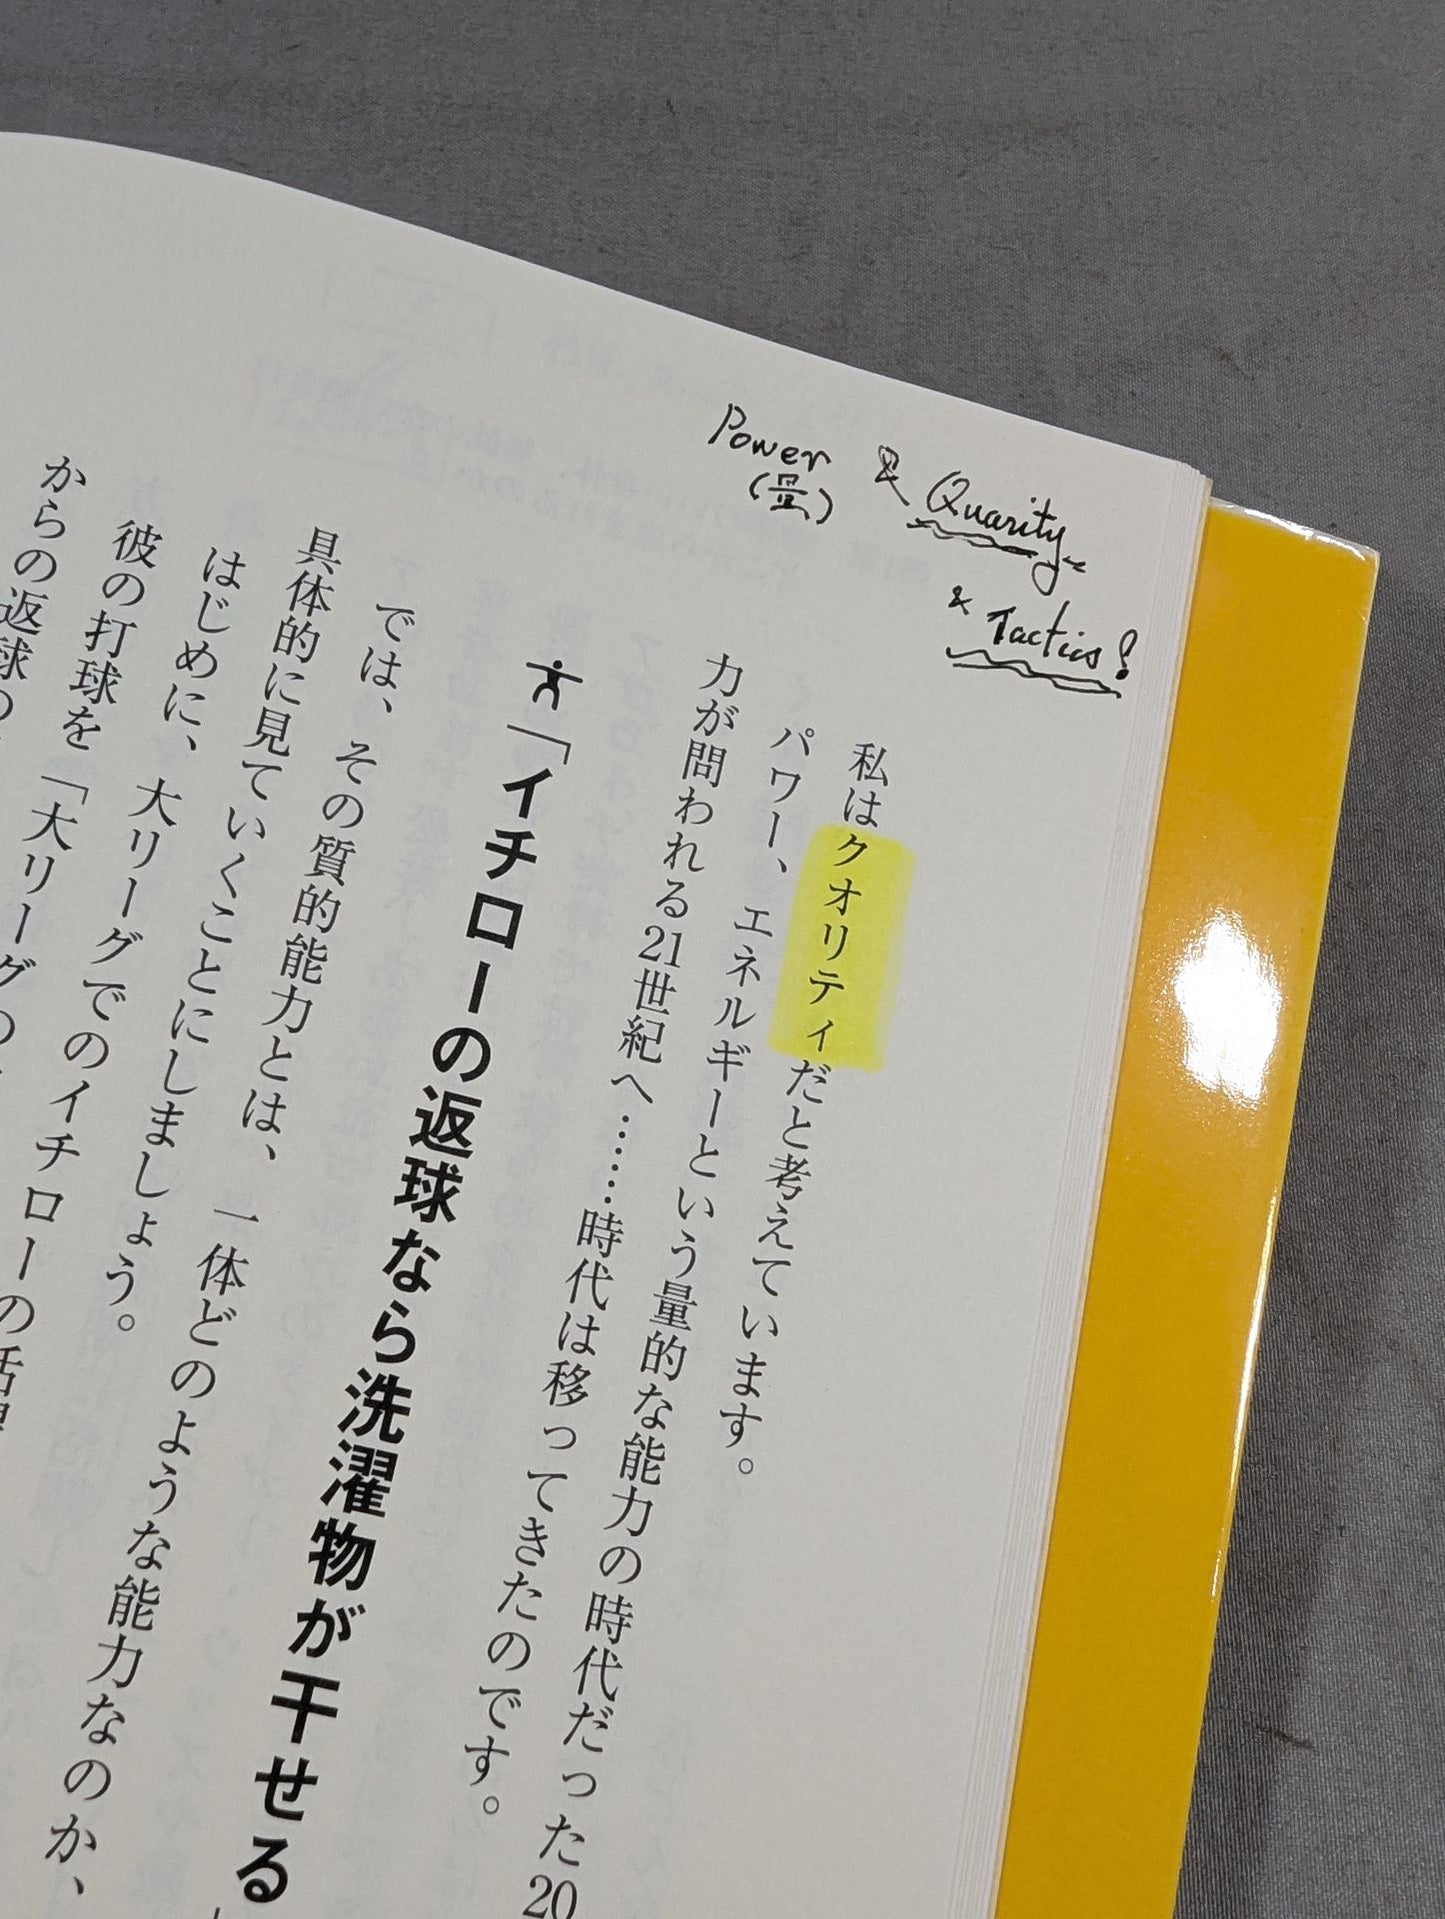 Power & Quarity
(量)
& Tactics!
私はクオリティだと考えています。
パワー、エネルギーという量的な能力の時代だった20
力が問われる21世紀へ……時代は移ってきたのです。
「イチローの返球なら洗濯物が干せる
では、その質的能力とは、一体どのような能力なのか、
具体的に見ていくことにしましょう。
はじめに、大リーグでのイチローの活
彼の打球を「大リーグの
からの返球の